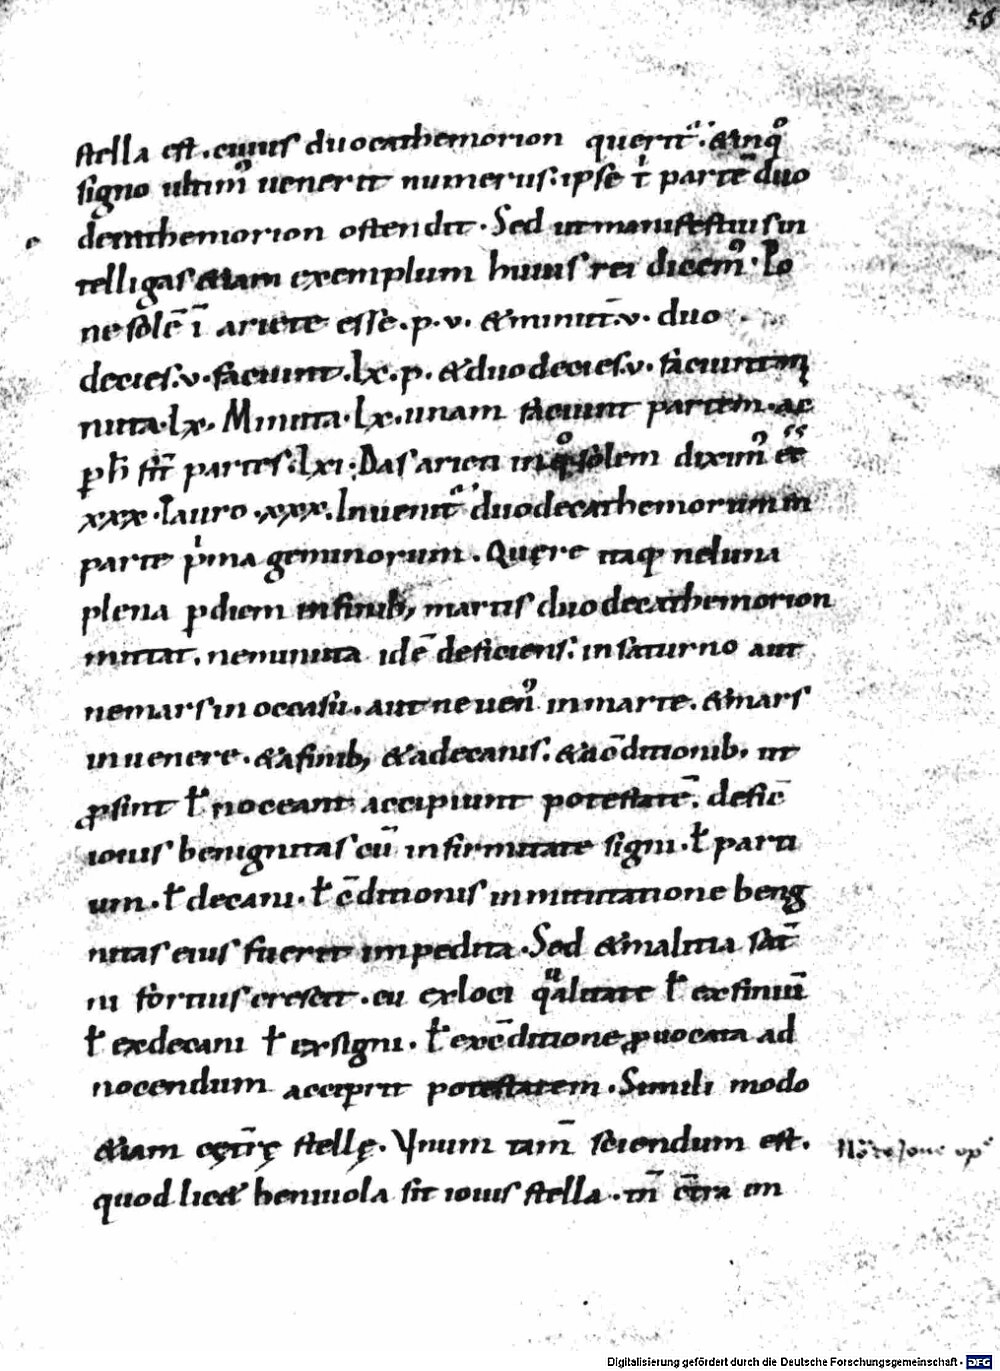 56
stella est. cuius duocathemorion querit᷑. & inq̊
signo ultim᷒ uenerit numerus. ipse ł partē duo
decathemorion ostendit. Sed ut manifestius in
telligas etiam exemplum huius rei dicem᷒. Po
ne solē ī ariete esse. p. v. & minut̄. v. duo
decies. v. faciunt. lx. p. & duodecies. v. faciunt mi
nuta. lx. Minuta. lx. unam faciunt partem. ac
partes. lxi. Das arieti in q̊ solem dixim᷒ eē
xxx. Tauro. xxx. Inuenit᷑ duodecathemorium in
parte pͥma geminorum. Quęre itaq ne luna
plena ꝑ diem in finib; martis duodecathemorion
mittat. ne minuta idē deficiens. in saturno aut
ne mars in occasu. aut ne uen᷒ in marte. & mars
in uenere. & a finib; & a decanis. & a c̄ditionib. ut
ꝓsint ł noceant accipiunt potestatē. deniq̄
iouis benignitas cū infirmitate signi. ł parti
um. ł decani. ł c̄ditionis inmutatione benig
nitas eius fuerit impedita. Sed & malitia satr̄
ni fortius crescit. cū ex loci qͣlitate ł ex finiū
ł ex decani ł ex signi. ł ex c̄ditione ꝓuocata ad
nocendum accipit potestatem. Simili modo
etiam cętr̄ę stellę. Vnum tam̄ sciendum est.
quod licet beniuola sit iouis stella. tn̄ c̄tra